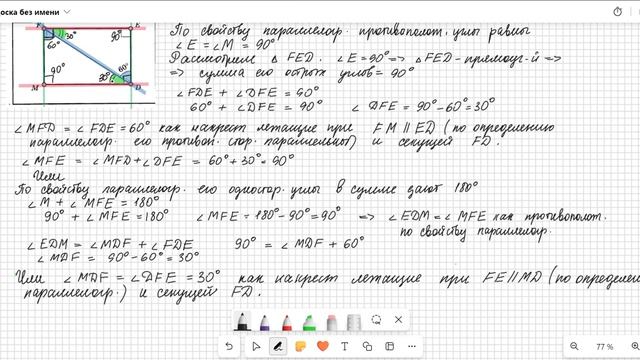 оска без имени
F 30° 60° E 90°
90° M 30° 60° D
По свойству параллелогр. противополот. углы равны
∠E = ∠M = 90°
Рассмотрим △ FED. ∠E = 90° => △FED - прямоуг-й =>
=> сумма его острых углов = 90°
∠FDE + ∠DFE = 90°
60° + ∠DFE = 90° ∠DFE = 90° - 60° = 30°
∠MFD = ∠FDE = 60° как накрест летащие при FM || ED (по определению
параллелогр. его противоп. стор. параллельны) и секущей FD.
∠MFE = ∠MFD + ∠DFE = 60° + 30° = 90°
Или
По свойству параллелогр. его одностор. углы в сумме дают 180°
∠M + ∠MFE = 180°
90° + ∠MFE = 180° ∠MFE = 180° - 90° = 90° => ∠EDM = ∠MFE как противополот.
по свойству параллелогр.
∠EDM = ∠MDF + ∠FDE 90° = ∠MDF + 60°
∠MDF = 90° - 60° = 30°
Или ∠MDF = ∠DFE = 30° как накрест летащие при FE || MD (по определен
параллелогр.) и секущей FD.
77 %